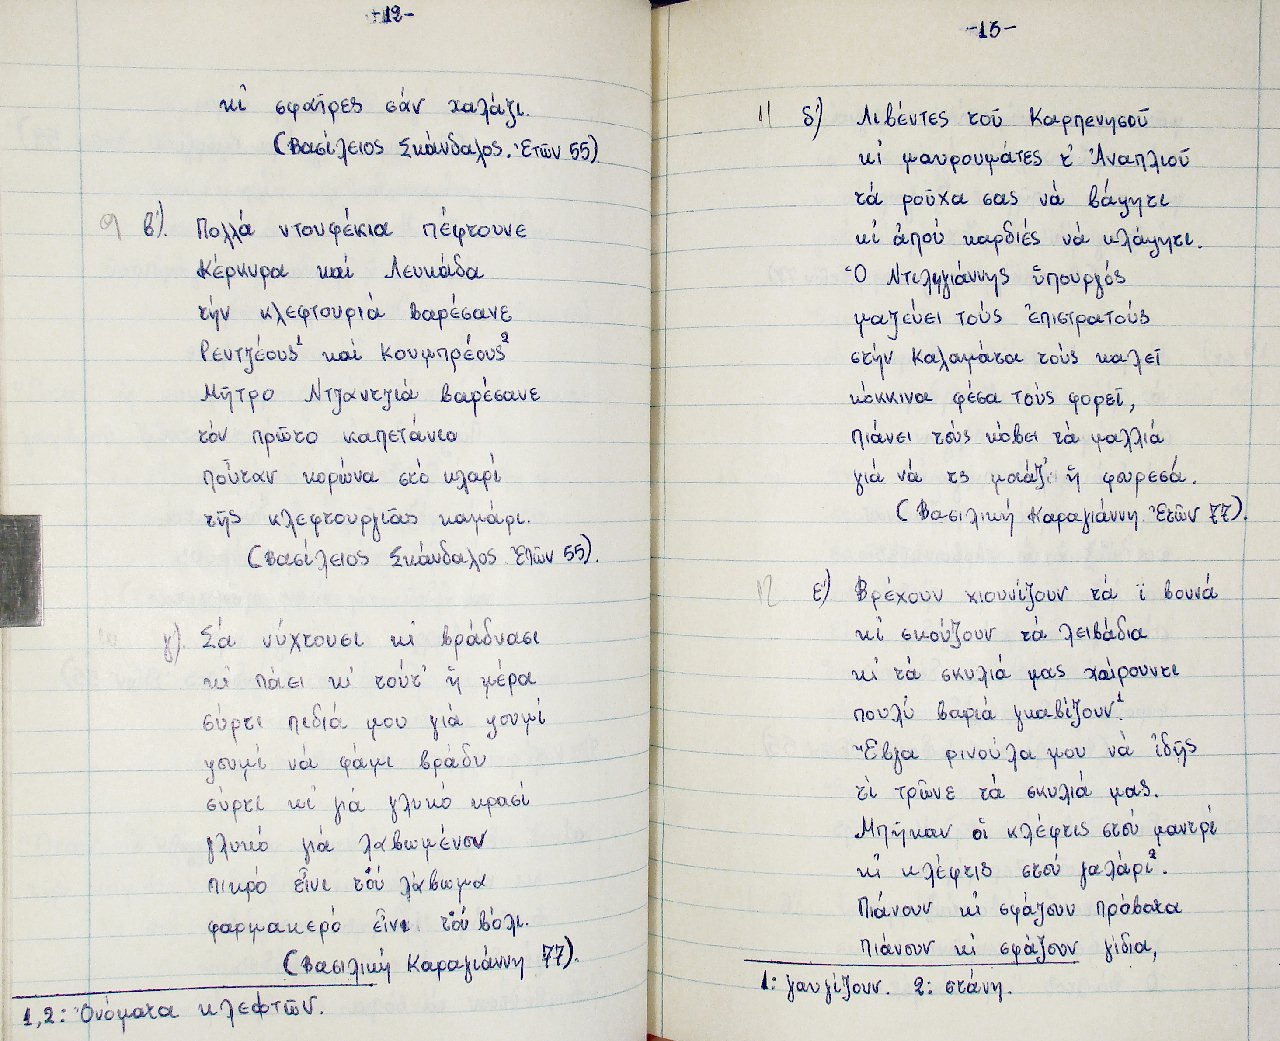 -12-
κἰ σφαῖρες σάν χαλάζι.
(Βασίλειος Σκάνδαλος. Ἐτῶν 55)
9 β'). Πολλά ντουφέκια πέφτουνε
Κέρκυρα καί Λευκάδα
τήν κλεφτουριά βαρέσανε
Ρεντζέους¹ καί Κουμπρέους²
Μῆτρο Ντζαντζιά βαρέσανε
τόν πρῶτο καπετάνιο
ποὖταν κορώνα στό κλαρί
τῆς κλεφτουργιᾶς καμάρι.
(Βασίλειος Σκάνδαλος Ἐτῶν 55).
γ). Σά νύχτουσι κἰ βράδυασι
κἰ πάει κἰ τούτ' ἥ μέρα
σύρτι πιδιά μου γιά ψουμί
ψουμί νά φάμι βράδυ
σύρτι κἰ γιά γλυκό κρασί
γλυκό γιά λαβωμένον
πικρό εἶνι τοὐ λάβωμα
φαρμακερό εἶνι τοὐ βόλι.
(Βασιλική Καραγιάννη 77).
1,2: Ὀνόματα κλεφτῶν.
-13-
11 δ') Λιβέντες τοῦ Καρπενησοῦ
κἰ μαυρουμάτες τ' Ἀναπλιοῦ
τά ροῦχα σας νά βάψητι
κἰ ἀπού καρδιές νά κλάψητι.
Ὁ Ντιληγιάννης ὕπουργός
μαζεύει τούς ἐπιστρατούς
στήν Καλαμάτα τούς καλεῖ
κόκκινα φέσα τούς φορεῖ,
πιάνει τσύς κόβει τά μαλλιά
γιά νά τς μοιάζ' ἥ φουρεσά.
(Βασιλική Καραγιάννη Ἐτῶν 77).
12 ε') Βρέχουν χιουνίζουν τά ϊ βουνά
κἰ σκούζουν τά λειβάδια
κἰ τά σκυλιά μας χαίρουντι
πουλύ βαριά γκαβίζουν.¹
Ἔβγα ρινούλα μου νά ἰδῆς
τί τρῶνε τά σκυλιά μας.
Μπῆκαν οἱ κλέφτις στού μαντρί
κἰ κλέφτις στού γαλάρι².
Πιάνουν κἰ σφάζουν πρόβατα
πιάνουν κἰ σφάζουν γίδια,
1: γαυγίζουν. 2: στάνη.